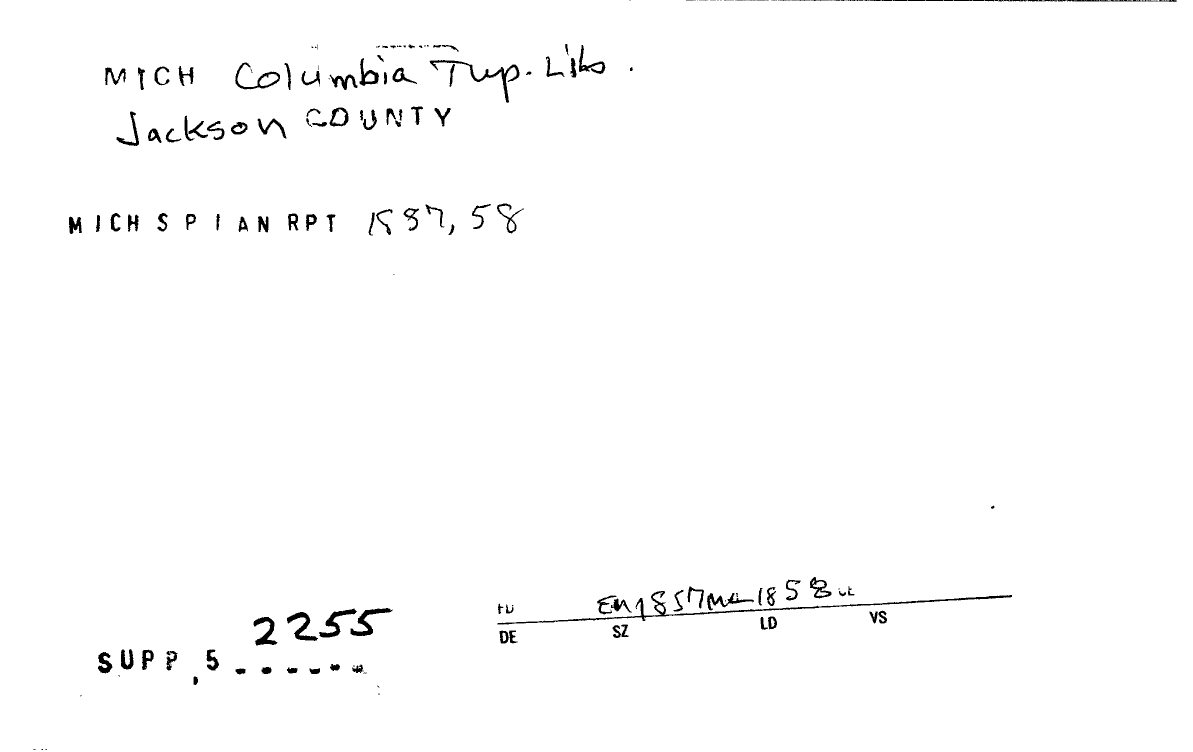 MICH Columbia Twp. Lib.
Jackson COUNTY
MICH S P I AN RPT 1857, 58
2255
SUPP, 5 ------
1857 1858
DE SZ LD VS